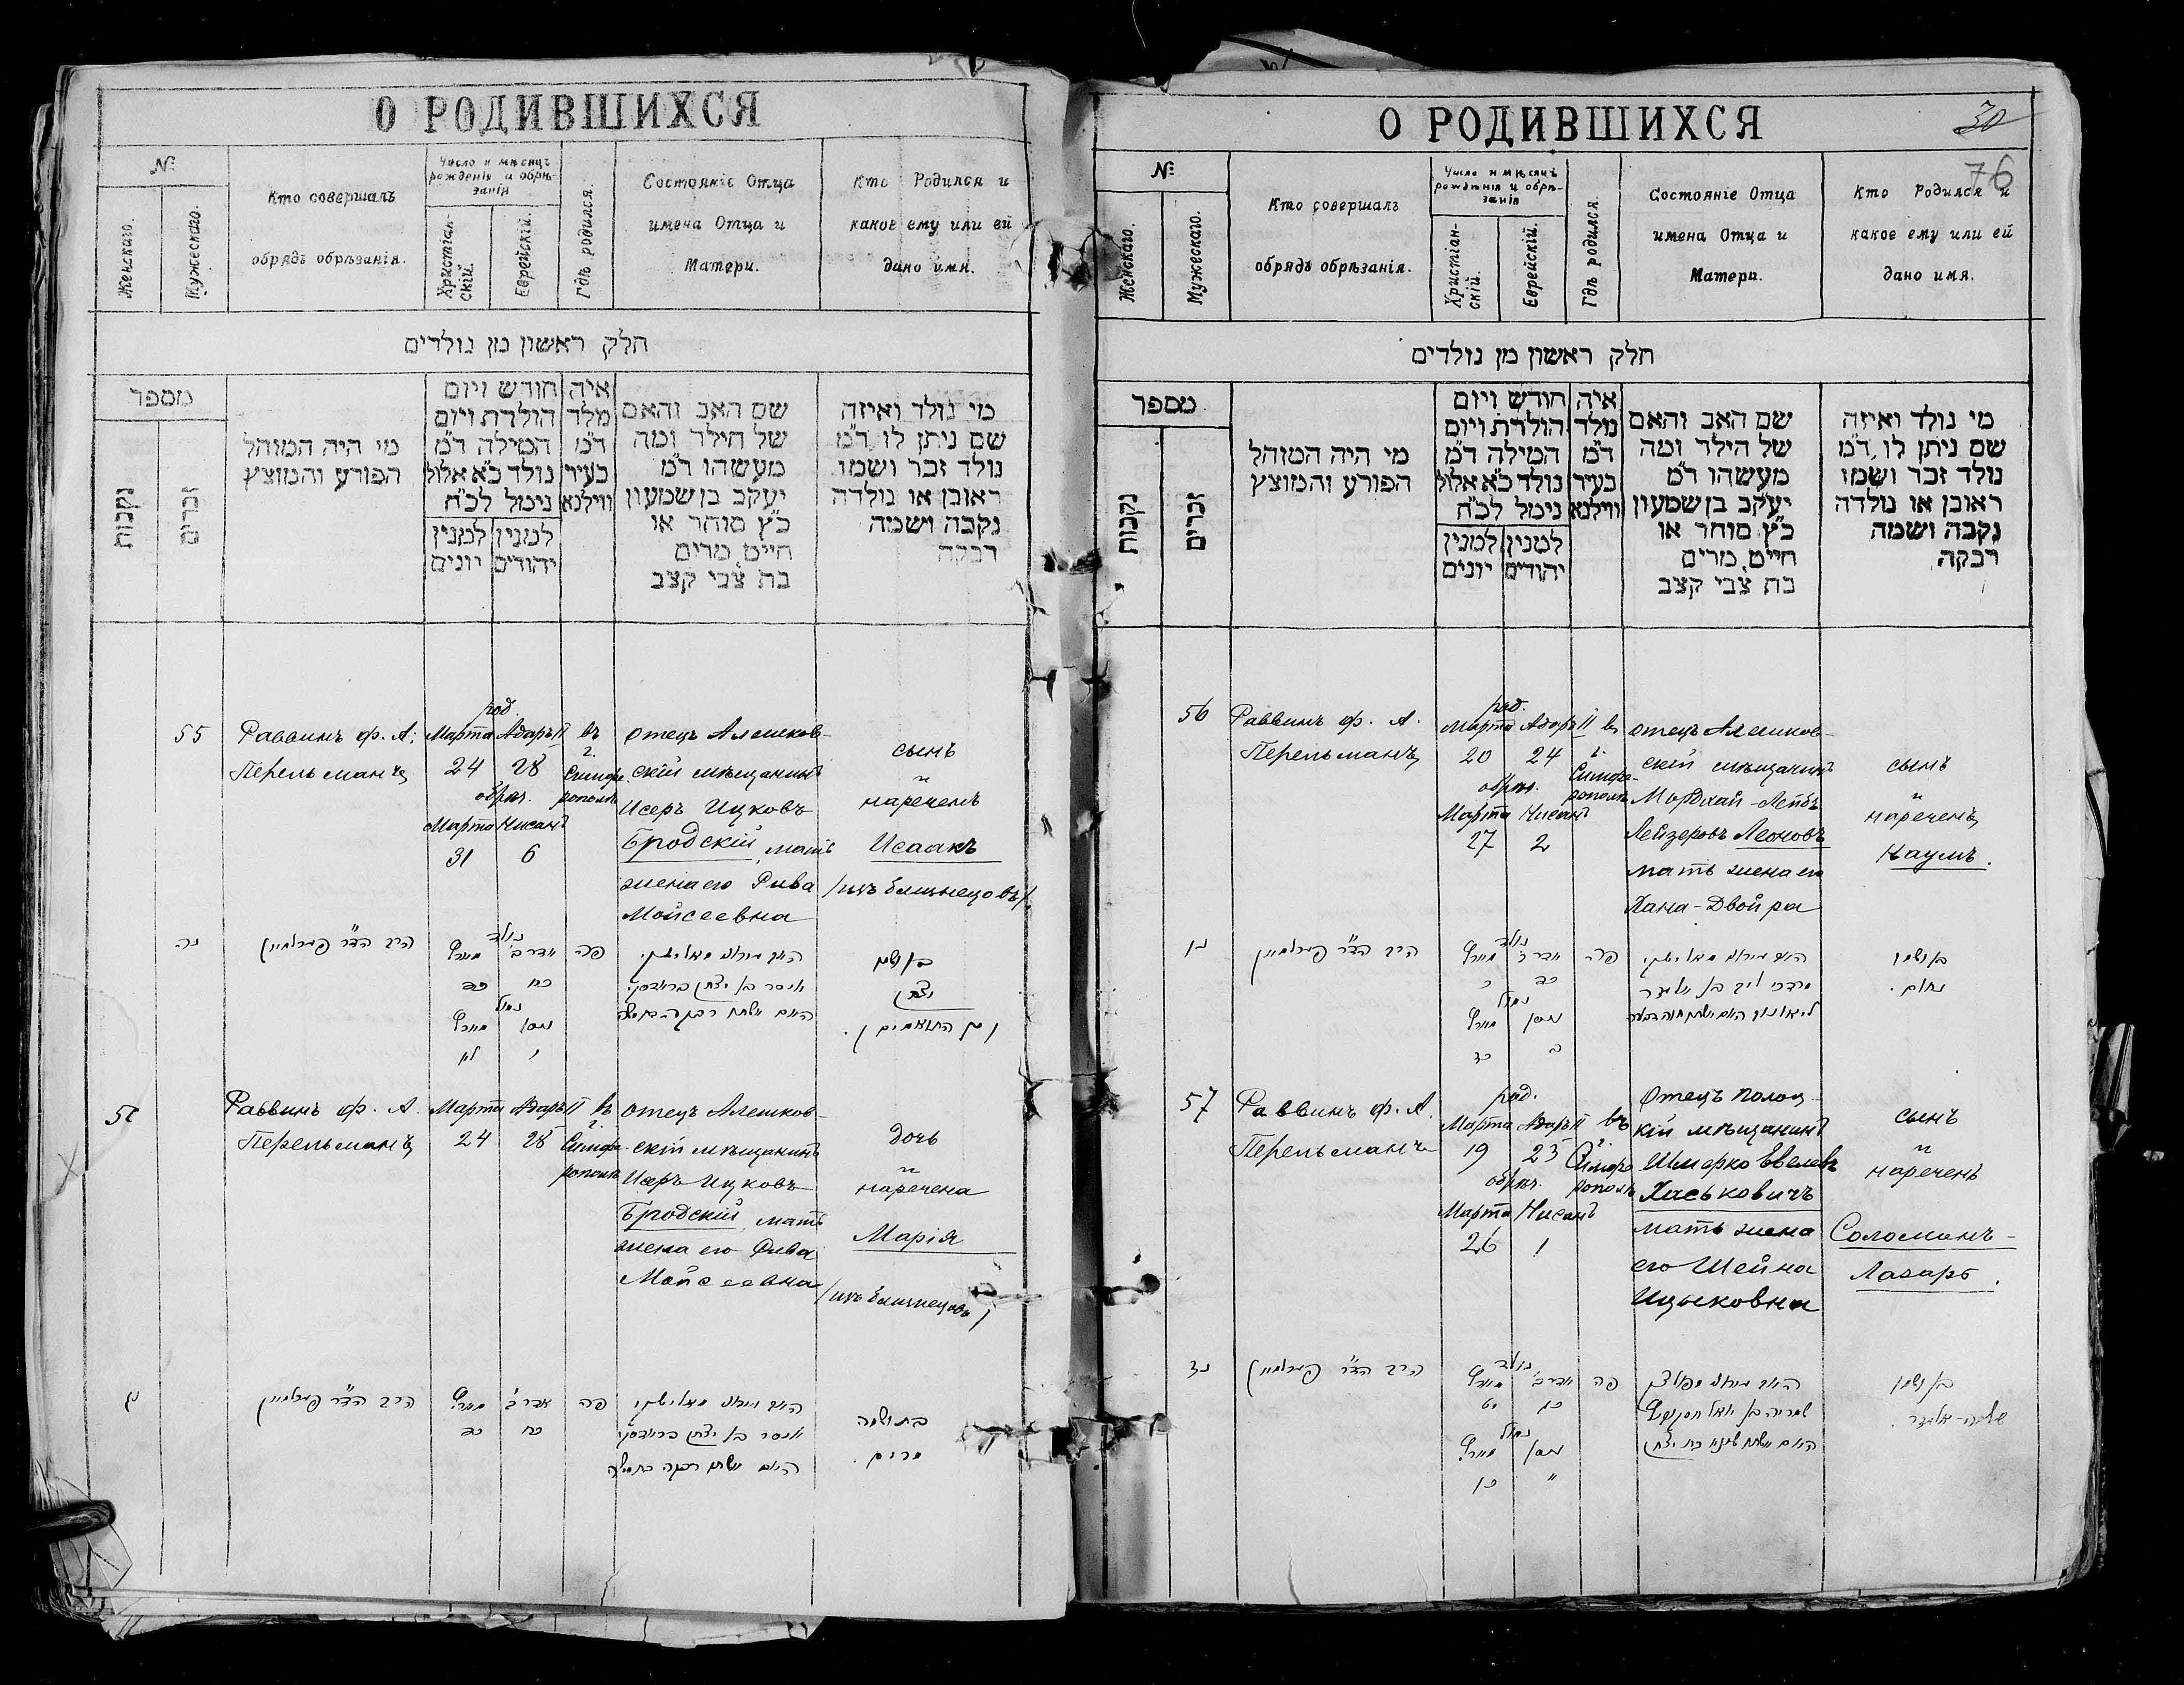 О РОДИВШИХСЯ
№
Женскаго.
Мужескаго.
Кто совершалъ
обрядъ обрѣзанія.
Число и мѣсяцъ
рожденія и обрѣ-
занія
Христіан-
скій.
Еврейскій.
Гдѣ родился.
Состояніе Отца
имена Отца и
Матери.
Кто Родился и
какое ему или ей
дано имя.
חלק ראשון מן נולדים
מספר
נקבות
זכרים
מי היה המוהל
הפורע והמוצץ
איה חודש ויום
מלד הולדת ויום
ד״מ המילה ד״מ
בעיר נולד כ״א אלול
ווילנא נימל לכ״ח
למנין למנין
יהודים יונים
שם האב והאם
של הילד ומה
מעשהו ד״מ
יעקב בן שמעון
כ״ץ סוחר או
חייט, מרים
בת צבי קצב
מי נולד ואיזה
שם ניתן לו, ד״מ
נולד זכר ושמו
ראובן או נולדה
נקבה ושמה
רבקה
55
Раввинъ ф. А.
Перельманъ
род.
Марта Адаръ II
24 28
обрѣз.
Марта Нисанъ
31 6
въ
г.
Симфе-
рополѣ
отецъ Алешков-
скій мѣщанинъ
Исеръ Ицковъ
Бродскій, мать
жена его Рива
Мойсеевна
сынъ
и
нареченъ
Исаакъ
/изъ близнецовъ/.
נה
הרב הד״ר פערלמאן
נולד
אדר ב׳ מערץ
כח כד
נמול
ניסן מערץ
ו לא
פה
איסר בן יצחק בראדסקי
בן ושמו
יצחק
(מן התאומים).
Раввинъ ф. А.
Перельманъ
Марта Адаръ II
24 28
въ
г.
Симфе-
рополѣ
отецъ Алешков-
скій мѣщанинъ
Исеръ Ицковъ
Бродскій, мать
жена его Рива
Мойсеевна
дочь
и
наречена
Марія
/изъ близнецовъ/
הרב הד״ר פערלמאן
אדר ב׳ מערץ
כח כד
פה
איסר בן יצחק בראדסקי
בת ושמה
מרים.
О РОДИВШИХСЯ
30
76
№
Женскаго.
Мужескаго.
Кто совершалъ
обрядъ обрѣзанія.
Число и мѣсяцъ
рожденія и обрѣ-
занія
Христіан-
скій.
Еврейскій.
Гдѣ родился.
Состояніе Отца
имена Отца и
Матери.
Кто Родился и
какое ему или ей
дано имя.
חלק ראשון מן נולדים
מספר
נקבות
זכרים
מי היה המוהל
הפורע והמוצץ
איה חודש ויום
מלד הולדת ויום
ד״מ המילה ד״מ
בעיר נולד כ״א אלול
ווילנא נימל לכ״ח
למנין למנין
יהודים יונים
שם האב והאם
של הילד ומה
מעשהו ד״מ
יעקב בן שמעון
כ״ץ סוחר או
חייט, מרים
בת צבי קצב
מי נולד ואיזה
שם ניתן לו, ד״מ
נולד זכר ושמו
ראובן או נולדה
נקבה ושמה
רבקה
56
Раввинъ ф. А.
Перельманъ
род.
Марта Адаръ II
20 24
обрѣз.
Марта Нисанъ
27 2
въ
г.
Симфе-
рополѣ
отецъ Алешков-
скій мѣщанинъ
Мордхай-Лейбъ
Лейзеровъ Леоновъ
мать жена его
Хана-Двойра
сынъ
и
нареченъ
Наумъ.
נו
הרב הד״ר פערלמאן
נולד
אדר ב׳ מערץ
כד כ
נמול
ניסן מערץ
ב כז
פה
מרדכי ליב בן אליעזר
בן ושמו
נחום.
57
Раввинъ ф. А.
Перельманъ
род.
Марта Адаръ II
19 23
обрѣз.
Марта Нисанъ
26 1
въ
г.
Симфе-
рополѣ
Отецъ Полоц-
кій мѣщанинъ
Шмерко Евелевъ
Хаськовичъ
мать жена
его Шейна
Ицыковна
сынъ
и
нареченъ
Соломонъ-
Лазарь.
נז
הרב הד״ר פערלמאן
נולד
אדר ב׳ מערץ
כג יט
נמול
ניסן מערץ
א כו
פה
בן ושמו
שלמה-אליעזר.